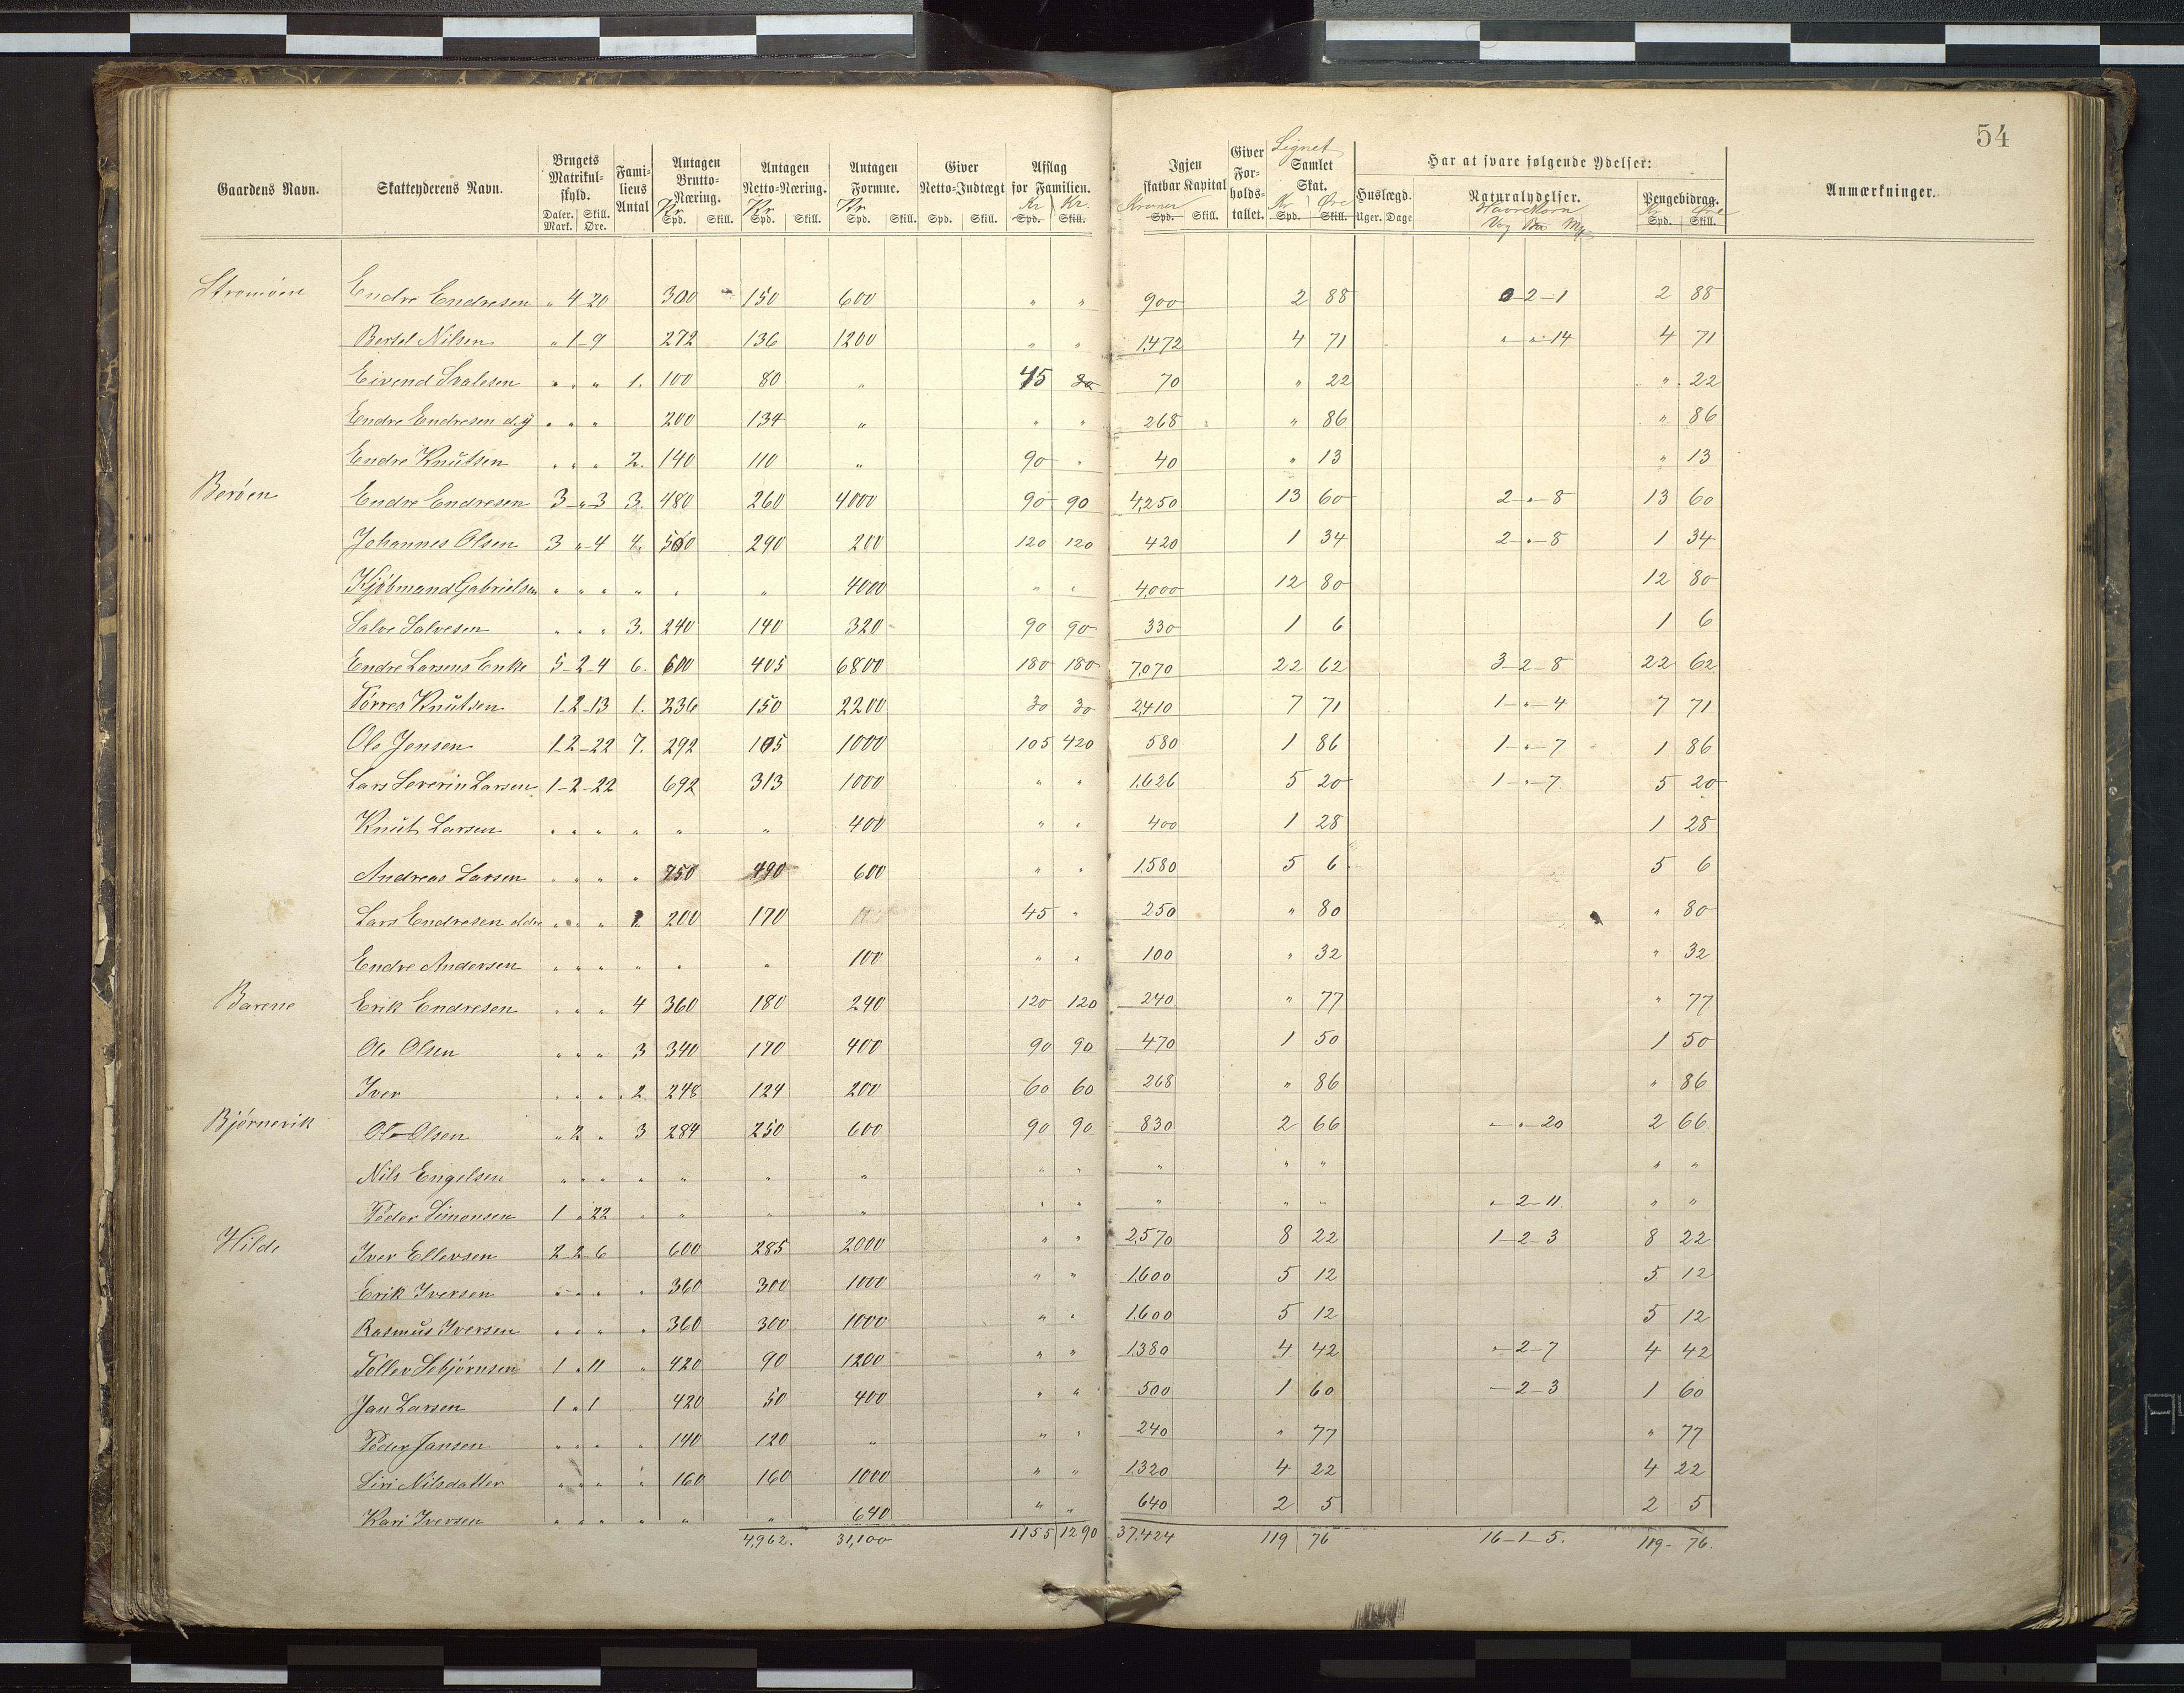 54
Gaardens Navn. Skatteyderens Navn. Brugets Matrikul-skyld. Daler. Mark. Skill. Øre. Fami-liens Antal Antagen Brutto-Næring. Kr Spd. Skill. Antagen Netto-Næring. Kr Spd. Skill. Antagen Formue. Kr Spd. Skill. Giver Netto-Indtægt Spd. Skill. Afslag for Familien. Kr Spd. Kr. Skill. Igjen skatbar Kapital Kroner Spd. Skill. Giver For-holds-tallet. Lignet Samlet Skat. Kr Spd. Øre Skill. Har at svare følgende Ydelser: Huslægd. Uger. Dage Naturalydelser. Havrekorn Vog Mk Pengebidrag. Kr Spd. Øre Skill. Anmærkninger.
Strømøen Endre Endresen " 4 20 300 150 600 " " 900 2 88 0-2-1 2 88
Bertel Nilsen " 1-9 272 136 1200 " " 1,472 4 71 " " 14 4 71
Eivend Svalesen " " " 1. 100 80 " 45 30 70 " 22 " 22
Endre Endresen d.y " " " 200 134 " " " 268 " 86 " 86
Endre Knutsen " " " 2. 140 110 " 90 " 40 " 13 " 13
Berøen Endre Endresen 3-"-3 3. 480 260 4000 90 90 4,250 13 60 2-"-8 13 60
Johannes Olsen 3 "-4 4. 560 290 200 120 120 420 1 34 2-"-8 1 34
Kjøbmand Gabrielsen " " " " " " 4000 " " 4,000 12 80 12 80
Salve Salvesen " " " 3. 240 140 320 90 90 330 1 6 1 6
Endre Larsens Enke 5-2-4 6. 600 405 6800 180 180 7,070 22 62 3-2-8 22 62
Tørres Knutsen 1-2-13 1. 236 150 2200 30 30 2,410 7 71 1-"-4 7 71
Ole Jensen 1-2-22 7. 292 105 1000 105 420 580 1 86 1-"-7 1 86
Lars Severin Larsen 1-2-22 692 313 1000 " " 1,626 5 20 1-"-7 5 20
Knut Larsen " " " " " " 400 " " 400 1 28 1 28
Andreas Larsen " " " " 750 490 600 " " 1,580 5 6 5 6
Lars Endresen eldre " " " 1. 200 170 45 " 250 " 80 " 80
Endre Andersen " " " " " " 100 " " 100 " 32 " 32
Barene Erik Endresen " " " 4 360 180 240 120 120 240 " 77 " 77
Ole Olsen " " " 3 340 170 400 90 90 470 1 50 1 50
Iver " " " 2 248 124 200 60 60 268 " 86 " 86
Bjørnevik Ole Olsen " 2 " 3 284 250 600 90 90 830 2 66 "-"-20 2 66
Nils Engelsen " " " " " " " " " " " " " "
Peder Simonsen 1 " 22 " " " " " " " " " "-2-11 " "
Hilde Iver Ellevsen 2-2-6 600 285 2000 " " 2,570 8 22 1-2-3 8 22
Erik Iversen " " " " 360 300 1000 " " 1,600 5 12 5 12
Rasmus Iversen " " " " 360 300 1000 " " 1,600 5 12 5 12
Tollev Sebjørnsen 1 " 11 " 420 90 1200 " " 1380 4 42 "-2-7 4 42
Jan Larsen 1 " 1 420 50 400 " " 500 1 60 -2-3 1 60
Peder Jansen " " " " 140 120 " " " 240 " 77 " 77
Siri Nilsdatter " " " " 160 160 1000 " " 1320 4 22 4 22
Kari Iversen " " " " " " 640 " " 640 2 5 2 5
4,962. 31,100 1155 1290 37,424 119 76 16-1-5. 119-76.